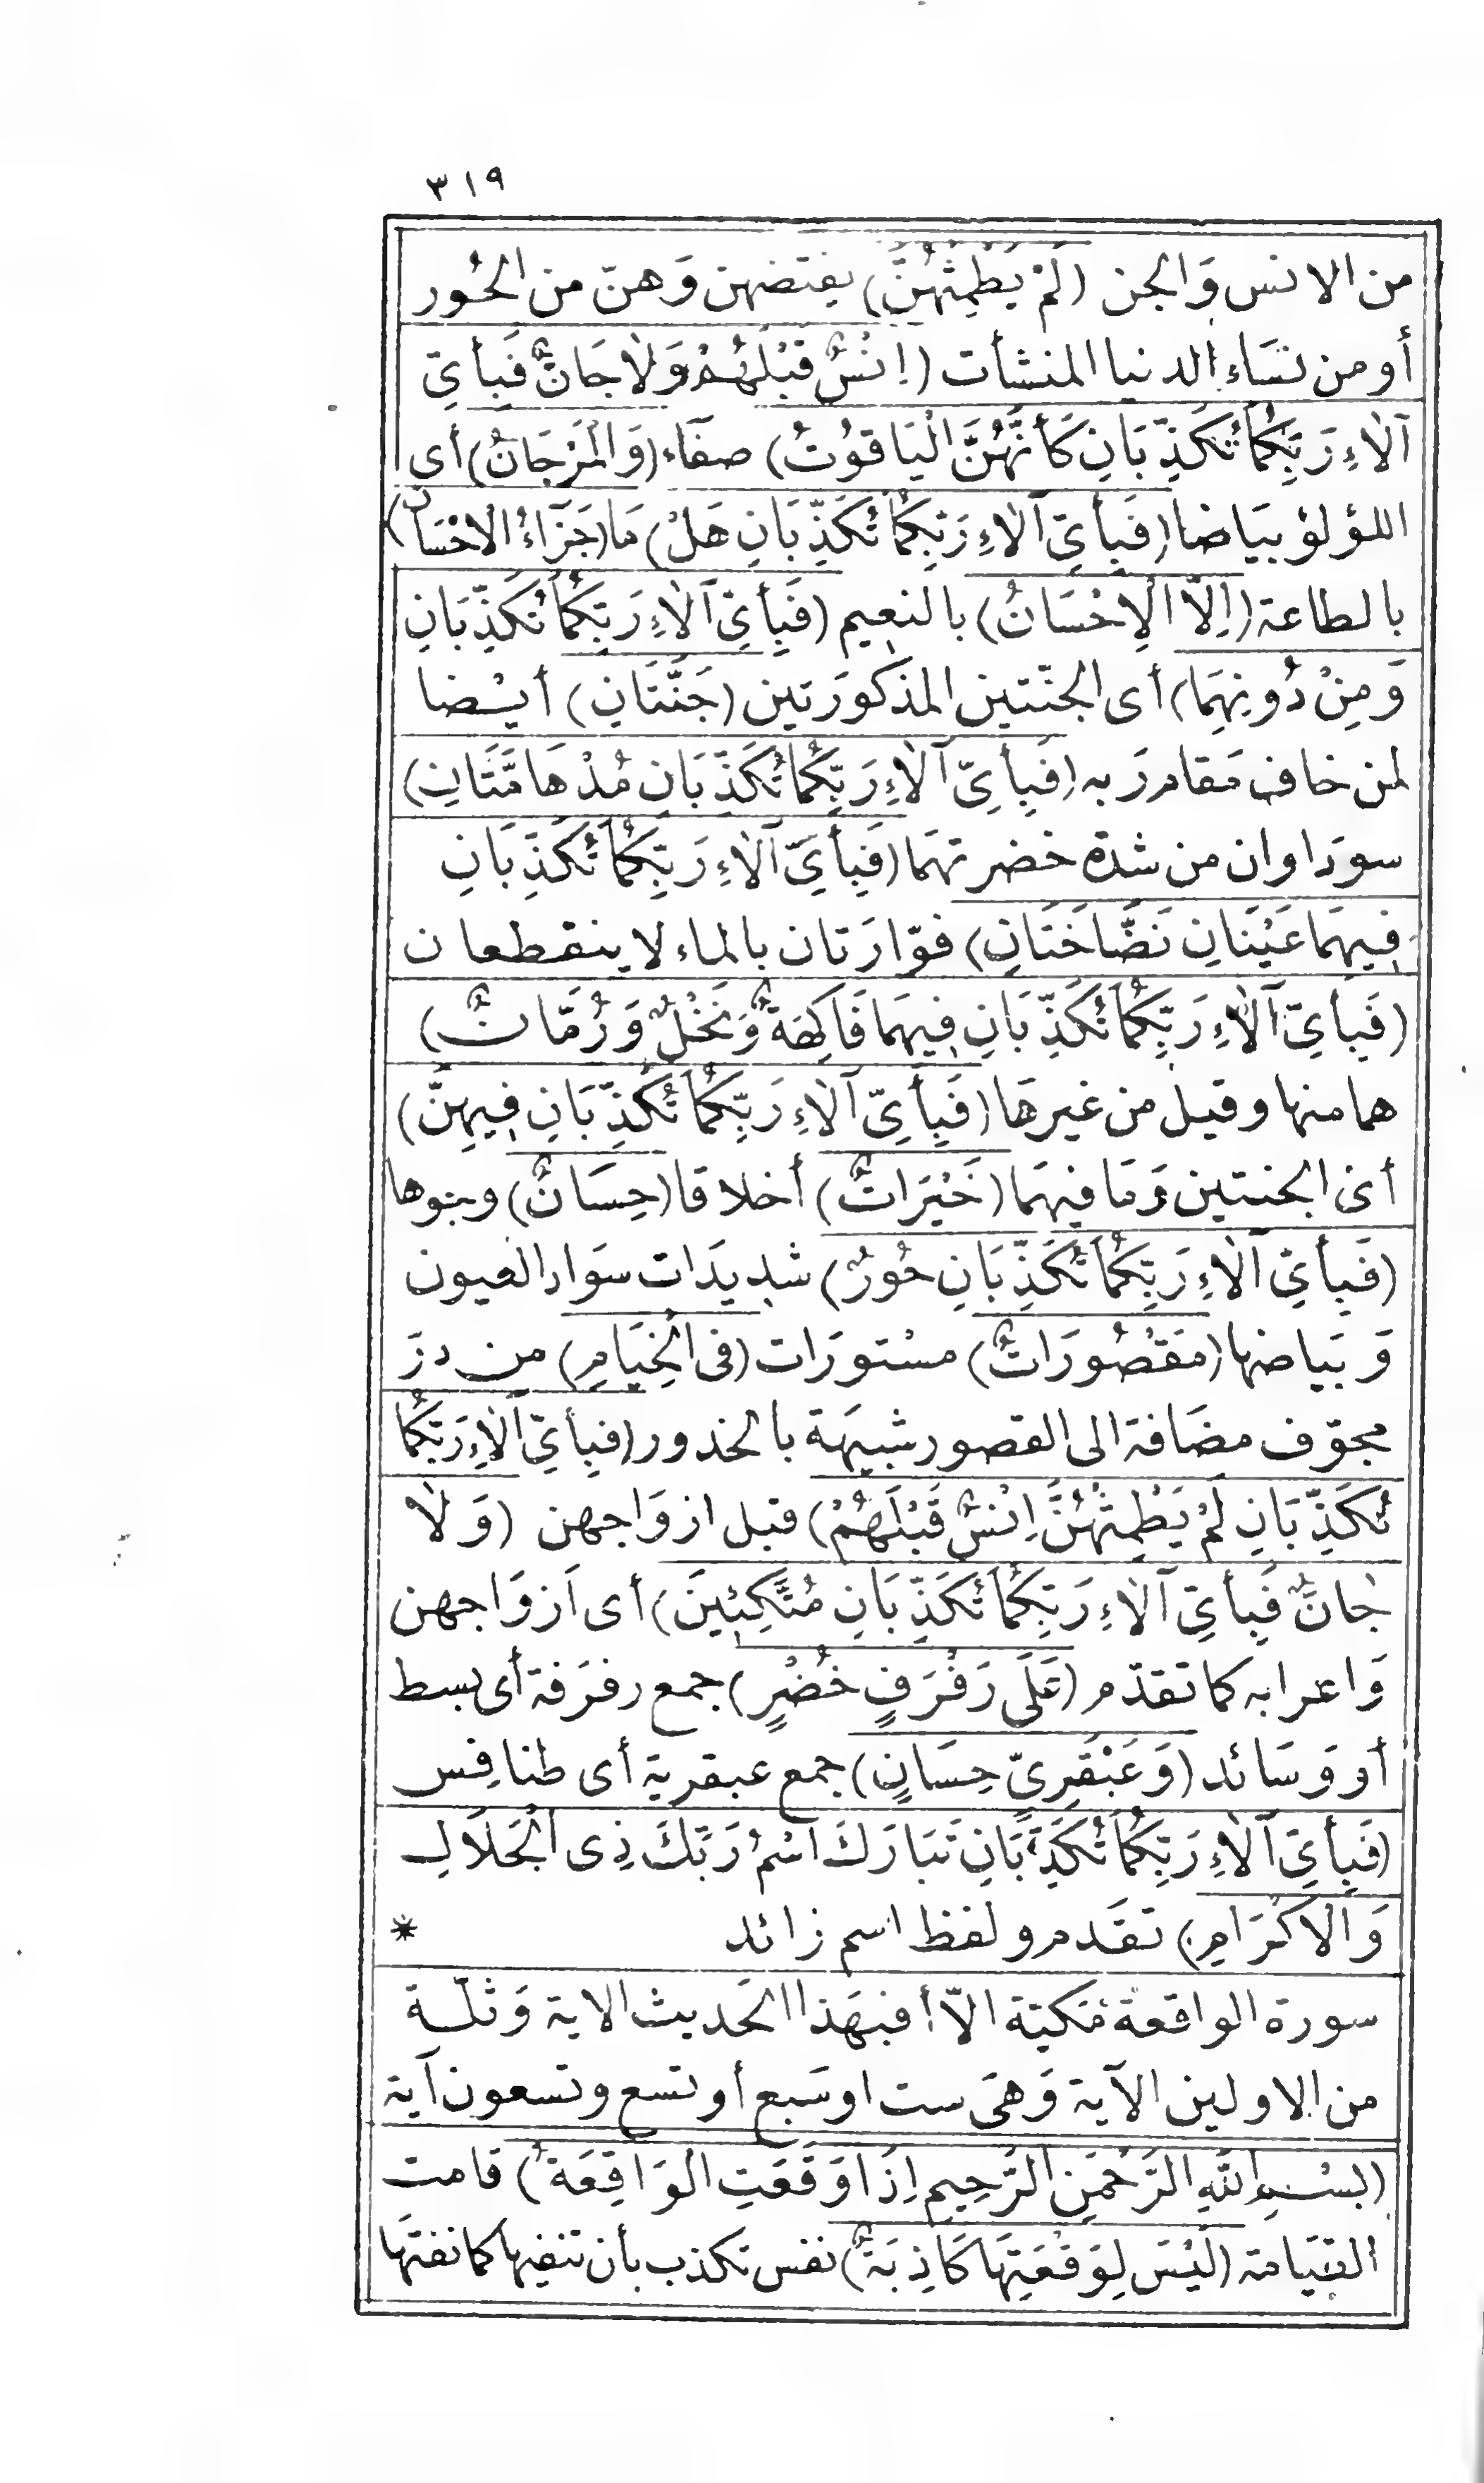 ٣١٩
من الانس وَالجن (لَمْ يَطْمِثْهُنَّ) يفتضهن وَهنّ من الحُور
أو من نسَاء الدنيا المنشأت (اِنْسٌ قَبْلَهُمْ وَلَا جَانٌّ فَبِأَيِّ
آلَاءِ رَبِّكُمَا تُكَذِّبَانِ كَأَنَّهُنَّ الْيَاقُوْتُ) صفآء (وَالْمَرْجَانُ) أى
اللؤلؤ بيَاضا (فَبِأَيِّ آلَاءِ رَبِّكُمَا تُكَذِّبَانِ هَلْ) مَا (جَزَآءُ الْاِحْسَانِ)
بالطاعة (اِلَّا الْاِحْسَانُ) بالنعيم (فَبِأَيِّ آلَاءِ رَبِّكُمَا تُكَذِّبَانِ
وَمِنْ دُونِهِمَا) أى الجنّتين المذكورَتين (جَنَّتَانِ) أيْضا
لمن خاف مَقام رَبه (فَبِأَيِّ آلَاءِ رَبِّكُمَا تُكَذِّبَانِ مُدْهَامَّتَانِ)
سودَاوان من شدّة خضرتهمَا (فَبِأَيِّ آلَاءِ رَبِّكُمَا تُكَذِّبَانِ
فِيهِمَا عَيْنَانِ نَضَّاخَتَانِ) فوّارَتان بالماء لا ينقطعان
(فَبِأَيِّ آلَاءِ رَبِّكُمَا تُكَذِّبَانِ فِيهِمَا فَاكِهَةٌ وَنَخْلٌ وَرُمَّانٌ)
هما منها وقيل من غيرهَا (فَبِأَيِّ آلَاءِ رَبِّكُمَا تُكَذِّبَانِ فِيهِنَّ)
أى الجنتين وَمَا فيهمَا (خَيْرَاتٌ) أخلاقا (حِسَانٌ) وجوها
(فَبِأَيِّ آلَاءِ رَبِّكُمَا تُكَذِّبَانِ حُورٌ) شديدَات سوَاد العيون
وَبيَاضها (مَقْصُورَاتٌ) مسْتورَات (فى الْخِيَامِ) من درّ
مجوّف مضَافة الى القصور شبيهَة بالخدور (فَبِأَيِّ آلَاءِ رَبِّكُمَا
تُكَذِّبَانِ لَمْ يَطْمِثْهُنَّ اِنْسٌ قَبْلَهُمْ) قبل ازوَاجهن (وَلَا
جَانٌّ فَبِأَيِّ آلَاءِ رَبِّكُمَا تُكَذِّبَانِ مُتَّكِئِينَ) أى اَزوَاجهن
وَاعرابه كما تقدّم (عَلَى رَفْرَفٍ خُضْرٍ) جمع رفرَفة أى بسط
أو وَسَائد (وَعَبْقَرِيٍّ حِسَانٍ) جمع عبقرية أى طنافس
(فَبِأَيِّ آلَاءِ رَبِّكُمَا تُكَذِّبَانِ تَبَارَكَ اسْمُ رَبِّكَ ذِى الْجَلَالِ
وَالْاِكْرَامِ) تقدم ولفظ اسم زائد *
سورة الواقعة مَكية الاّ أفبهَذا الحَديث الاية وَثلّة
من الاولين الآية وَهىَ ست اوسَبع أو تسع وتسعون آية
(بِسْمِ اللّٰهِ الرَّحْمٰنِ الرَّحِيمِ اِذَا وَقَعَتِ الْوَاقِعَةُ) قامت
القيَامة (لَيْسَ لِوَقْعَتِهَا كَاذِبَةٌ) نفس تكذب بأن تنفيها كما نفتهَا